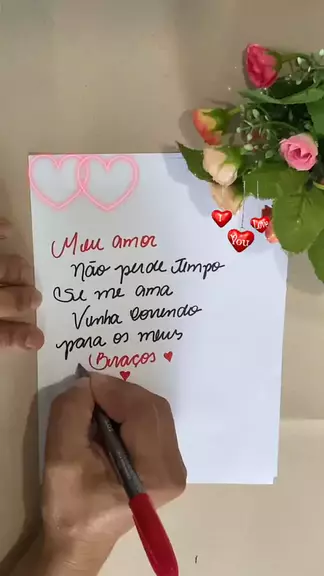 Meu amor
não perde tempo
Se me ama
Venha correndo
para os meus
Braços
I
Love
You